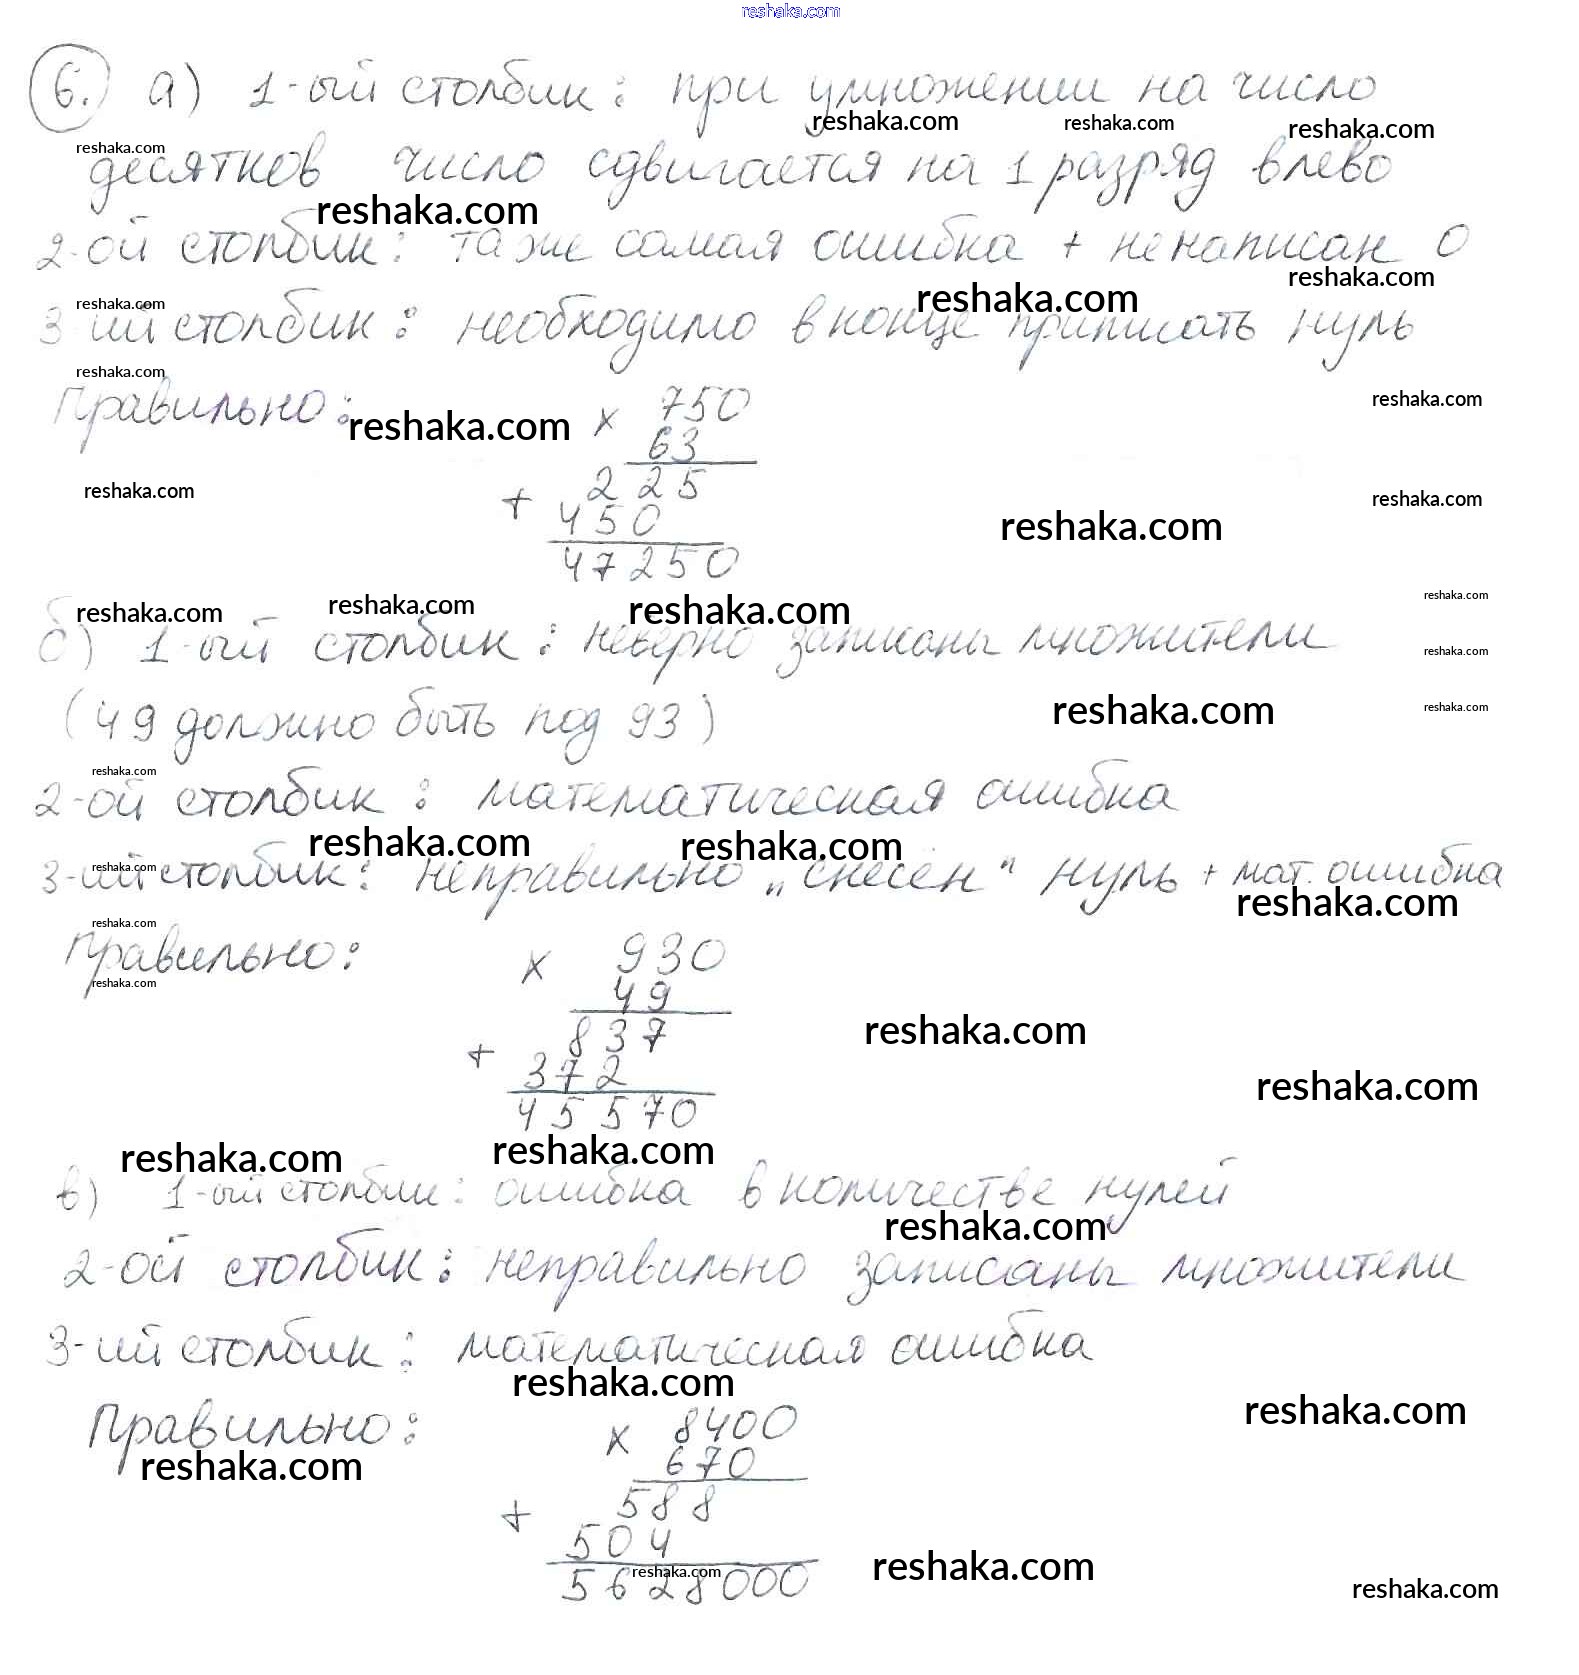 reshaka.com
6. а) 1-ый столбик: при умножении на число
reshaka.com reshaka.com reshaka.com
reshaka.com
десятков число сдвигается на 1 разряд влево
reshaka.com
2-ой столбик: та же самая ошибка + не написан 0
reshaka.com reshaka.com
reshaka.com
3-ий столбик: необходимо в конце приписать нуль
reshaka.com
Правильно: × 750
reshaka.com reshaka.com
63
reshaka.com 225 reshaka.com
+ 450 reshaka.com
47250
reshaka.com reshaka.com reshaka.com reshaka.com
б) 1-ый столбик: неверно записаны множители
reshaka.com
(49 должно быть под 93) reshaka.com reshaka.com
reshaka.com
2-ой столбик: математическая ошибка
reshaka.com reshaka.com
reshaka.com
3-ий столбик: неправильно „снесён" нуль + мат. ошибка
reshaka.com
reshaka.com
Правильно: × 930
reshaka.com
49
837 reshaka.com
+ 372 reshaka.com
45570
reshaka.com reshaka.com
в) 1-ый столбик: ошибка в количестве нулей
reshaka.com
2-ой столбик: неправильно записаны множители
3-ий столбик: математическая ошибка
reshaka.com reshaka.com
Правильно: × 8400
reshaka.com
670
588
+ 504
reshaka.com reshaka.com
5628000 reshaka.com